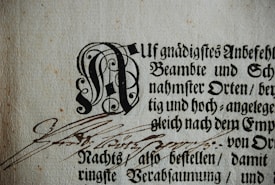 Auf gnädigstes Anbefehl
Beambte und Sch
nahmster Orten/ bey
tig und hoch-angelege
gleich nach dem Emp
von Or
Nachts/ also bestellen/ damit
ringste Verabsaumung/ und